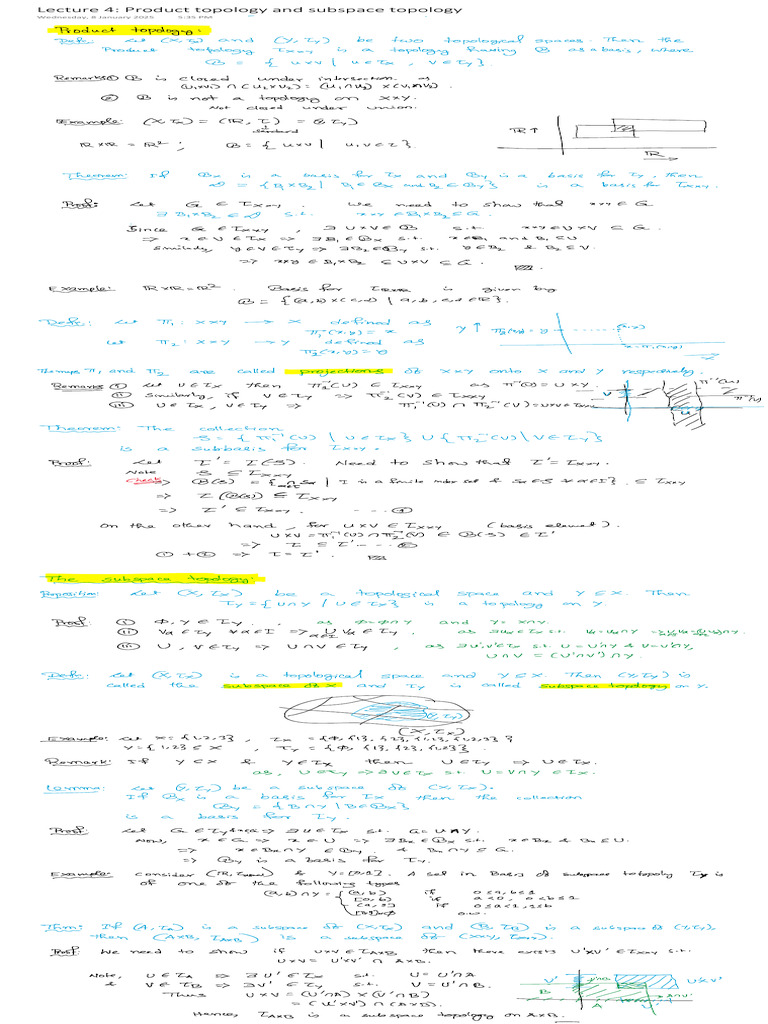 Lecture 4: Product topology and subspace topology
Wednesday, 8 January 2025 5:35 PM
Product topology:
Defn: Let (X,τx) and (Y,τy) be two topological spaces. Then the
Product topology τx×y is a topology having B as a basis, where
B = { U×V | U∈τx , V∈τy }
Remarks ① B is closed under intersection as
(U1×V1) ∩ (U2×V2) = (U1∩U2) × (V1∩V2)
② B is not a topology on X×Y.
Not closed under union.
Example: (X,τx) = (ℝ, τ) = (Y,τy)
standard
ℝ×ℝ = ℝ² ; B = { U×V | U,V∈τ }.
ℝ↑
ℝ→
Theorem: If Bx is a basis for τx and By is a basis for τy, then
D = { B1×B2 | B1∈Bx and B2∈By } is a basis for τx×y.
Proof: Let G ∈ τx×y. We need to show that x×y ∈ G
∃ B1×B2 ∈ D s.t. x×y ∈ B1×B2 ⊆ G.
Since G ∈ τx×y , ∃ U×V ∈ B s.t. x×y ∈ U×V ⊆ G.
⇒ x∈U∈τx ⇒ ∃ B1∈Bx s.t. x∈B1 and B1⊆U
Similarly y∈V∈τy ⇒ ∃ B2∈By s.t. y∈B2 & B2⊆V.
⇒ x×y ∈ B1×B2 ⊆ U×V ⊆ G.
Example: ℝ×ℝ = ℝ². Basis for τℝ×ℝ is given by
B = { (a,b)×(c,d) | a,b,c,d∈ℝ }.
Defn: Let π1 : X×Y → X defined as
π1(x,y) = x
Let π2 : X×Y → Y defined as
π2(x,y) = y
y↑ π2(x,y) = y (x,y)
x = π1(x,y)
The maps π1 and π2 are called projections of X×Y onto X and Y respectively.
Remarks ① Let U∈τx then π1⁻¹(U) ∈ τx×y as π1⁻¹(U) = U×Y
② Similarly, if V∈τy ⇒ π2⁻¹(V) ∈ τx×y
③ U∈τx , V∈τy ⇒ π1⁻¹(U) ∩ π2⁻¹(V) = U×V∈τx×y
Theorem: The collection
S = { π1⁻¹(U) | U∈τx } ∪ { π2⁻¹(V) | V∈τy }
is a subbasis for τx×y.
Proof: Let τ' = τ(S). Need to show that τ' = τx×y.
Note S ⊆ τx×y
Check ⇒ B(S) = { ∩Sα | I is a finite index set & Sα∈S ∀α∈I }. ⊆ τx×y
⇒ τ(B(S)) ⊆ τx×y
⇒ τ' ⊆ τx×y. ---- ①
On the other hand, for U×V ∈ τx×y (basis element).
U×V = π1⁻¹(U) ∩ π2⁻¹(V) ∈ B(S) ∈ τ'
⇒ τ ⊆ τ' ---- ②
① + ② ⇒ τ = τ'.
The subspace topology:
Proposition: Let (X,τx) be a topological space and Y⊆X. Then
τy = { U∩Y | U∈τx } is a topology on Y.
Proof ① Φ, Y ∈ τy. as Φ = Φ∩Y and Y = X∩Y.
② Vα∈τy ∀α∈I ⇒ ∪Vα∈τy.
③ U, V∈τy ⇒ U∩V ∈ τy , as ∃ U',V'∈τx s.t. U = U'∩Y & V = V'∩Y,
U∩V = (U'∩V') ∩ Y
Defn: Let (X,τx) is a topological space and Y⊆X. Then (Y,τy) is
called the subspace of X and τy is called subspace topology on Y.
(Y,τy)
(X,τx)
Example: Let X = {1,2,3} , τx = {Φ, {1}, {2}, {1,2}, {1,2,3}}
Y = {1,2} ⊆ X , τy = {Φ, {1}, {2}, {1,2}}.
Remark: If Y⊆X & Y∈τx then U∈τy ⇒ U∈τx.
as, U∈τy ⇒ ∃ V∈τx s.t. U = V∩Y ∈ τx.
Lemma: Let (Y,τy) be a subspace of (X,τx).
If Bx is a basis for τx then the collection
By = { B∩Y | B∈Bx }
is a basis for τy.
Proof: Let G∈τy ⇒ ∃ U∈τx s.t. G = U∩Y.
Now, x∈G ⇒ x∈U ⇒ ∃ Bx∈Bx s.t. x∈Bx & Bx⊆U.
⇒ x∈Bx∩Y ∈ By. & Bx∩Y ⊆ G.
⇒ By is a basis for τy.
Example: Consider (ℝ,τusual) & Y = [0,1]. A set in Basis of subspace topology τy is
of one of the following types
(a,b)∩Y = { (a,b) if 0≤a,b≤1
[0,b) if a<0, 0<b≤1
(a,1] if 0≤a<1, 1≤b
o.w.
Thm: If (A,τA) is a subspace of (X,τx) and (B,τB) is a subspace of (Y,τy),
then (A×B,τA×B) is a subspace of (X×Y,τx×y).
Proof: We need to show if U×V∈τA×B then there exists U'×V'∈τx×y s.t.
U×V = U'×V' ∩ A×B.
Note, U∈τA ⇒ ∃ U'∈τx s.t. U = U'∩A
& V∈τB ⇒ ∃ V'∈τy s.t. V = V'∩B.
Thus U×V = (U'∩A) × (V'∩B)
= (U'×V') ∩ (A×B).
Hence, τA×B is a subspace topology on A×B.
V' U'×V'
B
A U'